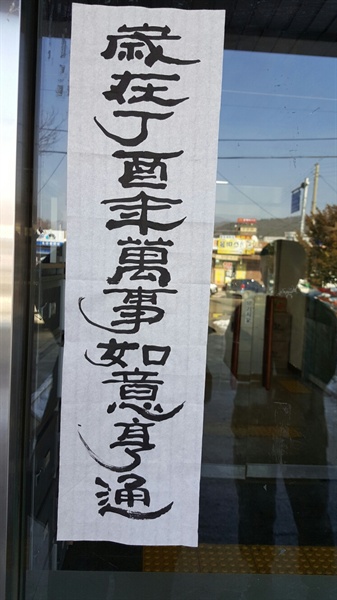 歲在丁酉年萬事如意亨通